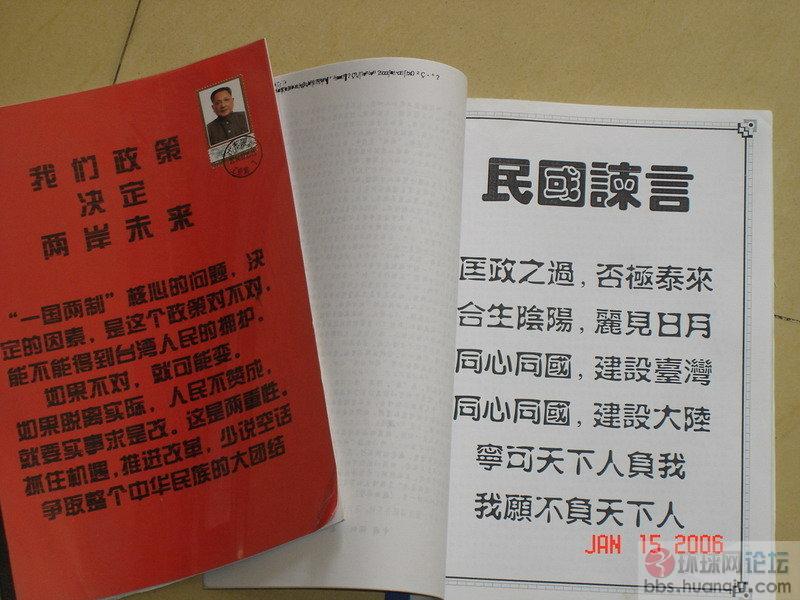 我们政策
决定
两岸未来
“一国两制”核心的问题，决
定的因素，是这个政策对不对，
能不能得到台湾人民的拥护。
如果不对，就可能变。
如果脱离实际，人民不赞成，
就要实事求是改。这是两重性。
抓住机遇，推进改革，少说空话
争取整个中华民族的大团结
民國諫言
匡政之過，否極泰來
合生陰陽，麗見日月
同心同國，建設臺灣
同心同國，建設大陸
寧可天下人負我
我願不負天下人
JAN 15 2006
环球网论坛
bbs.huanqiu.com